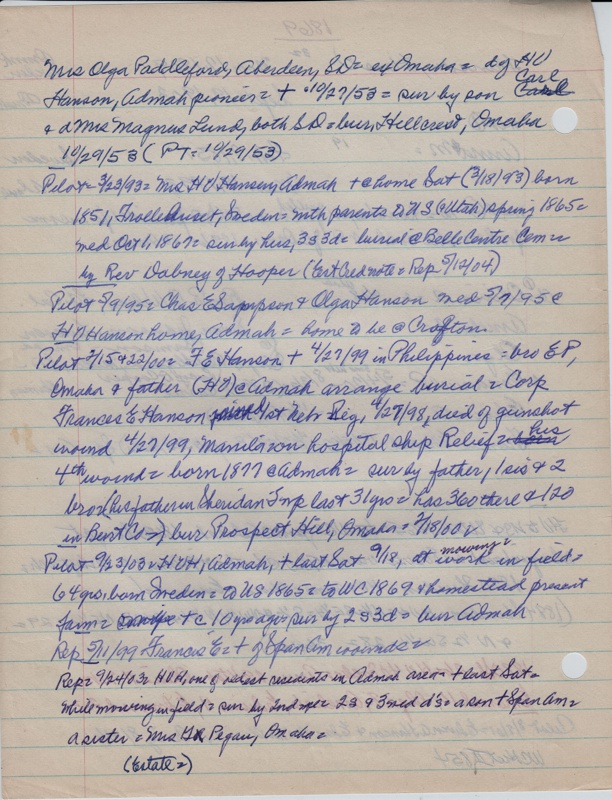 Mrs Olga Paddleford, Aberdeen, SD = ex Omaha = d of H U
Hanson, Admah pioneer = + 10/27/53 = sur by son Carl
& d Mrs Magnus Lund, both SD = bur, Hillcrest, Omaha
10/29/53 (PT = 10/29/53)
Pilot = 3/23/93 = Mrs H U Hanson, Admah + @ home Sat (3/18/93) born
1851, Trolle, Sweden = with parents to US (Utah) spring 1865 =
med Oct 1, 1867 = sur by hus, 3s 3d = buried @ Belle Centre Cem =
by Rev Dabney of Hooper (Est Cred note = Rep 5/12/04)
Pilot 5/9/95 = Chas E Sampson & Olga Hanson med 5/7/95 @
H U Hanson home, Admah = home to be @ Crofton
Pilot 2/15 & 22/00 = F E Hanson + 4/27/99 in Philippines = bro E P,
Omaha & father (HU) @ Admah arrange burial = Corp
Frances E Hanson joined 1st Neb Reg, 4/27/98, died of gunshot
wound 4/27/99, Manila on hospital ship Relief = his
4th wound = born 1877 @ Admah = sur by father, 1 sis & 2
bros (his father in Sheridan Twp last 31 yrs = has 360 there & 120
in Burt Co =) bur Prospect Hill, Omaha = 2/18/00
Pilot 9/23/03 = HUH, Admah, + last Sat 9/18, at mowing work in field =
64 yrs, born Sweden = to US 1865 = to WC 1869 & homestead present
farm = + c 10 yrs ago = sur by 2s 3d = bur Admah
Rep 5/11/99 Francis E = + of Span Am wounds =
Rep = 9/24/03 = HUH, one of oldest residents in Admah area = + last Sat =
while mowing in field = sur by 2nd 2s & 3 med d's = a son + Span Am =
a sister = Mrs Pegau, Omaha =
(Estate =)